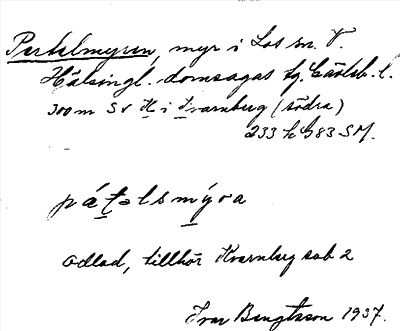 Pertelmyren, myr i Los sn. V.
Hälsingl. domsagas tg. Gävleb. l.
300 m SV K i Kvarnberg (södra)
233 k G83 SM.
pát̠əlsmýra
Odlad, tillhör Kvarnberg sab 2
Ivar Bengtsson 1937.